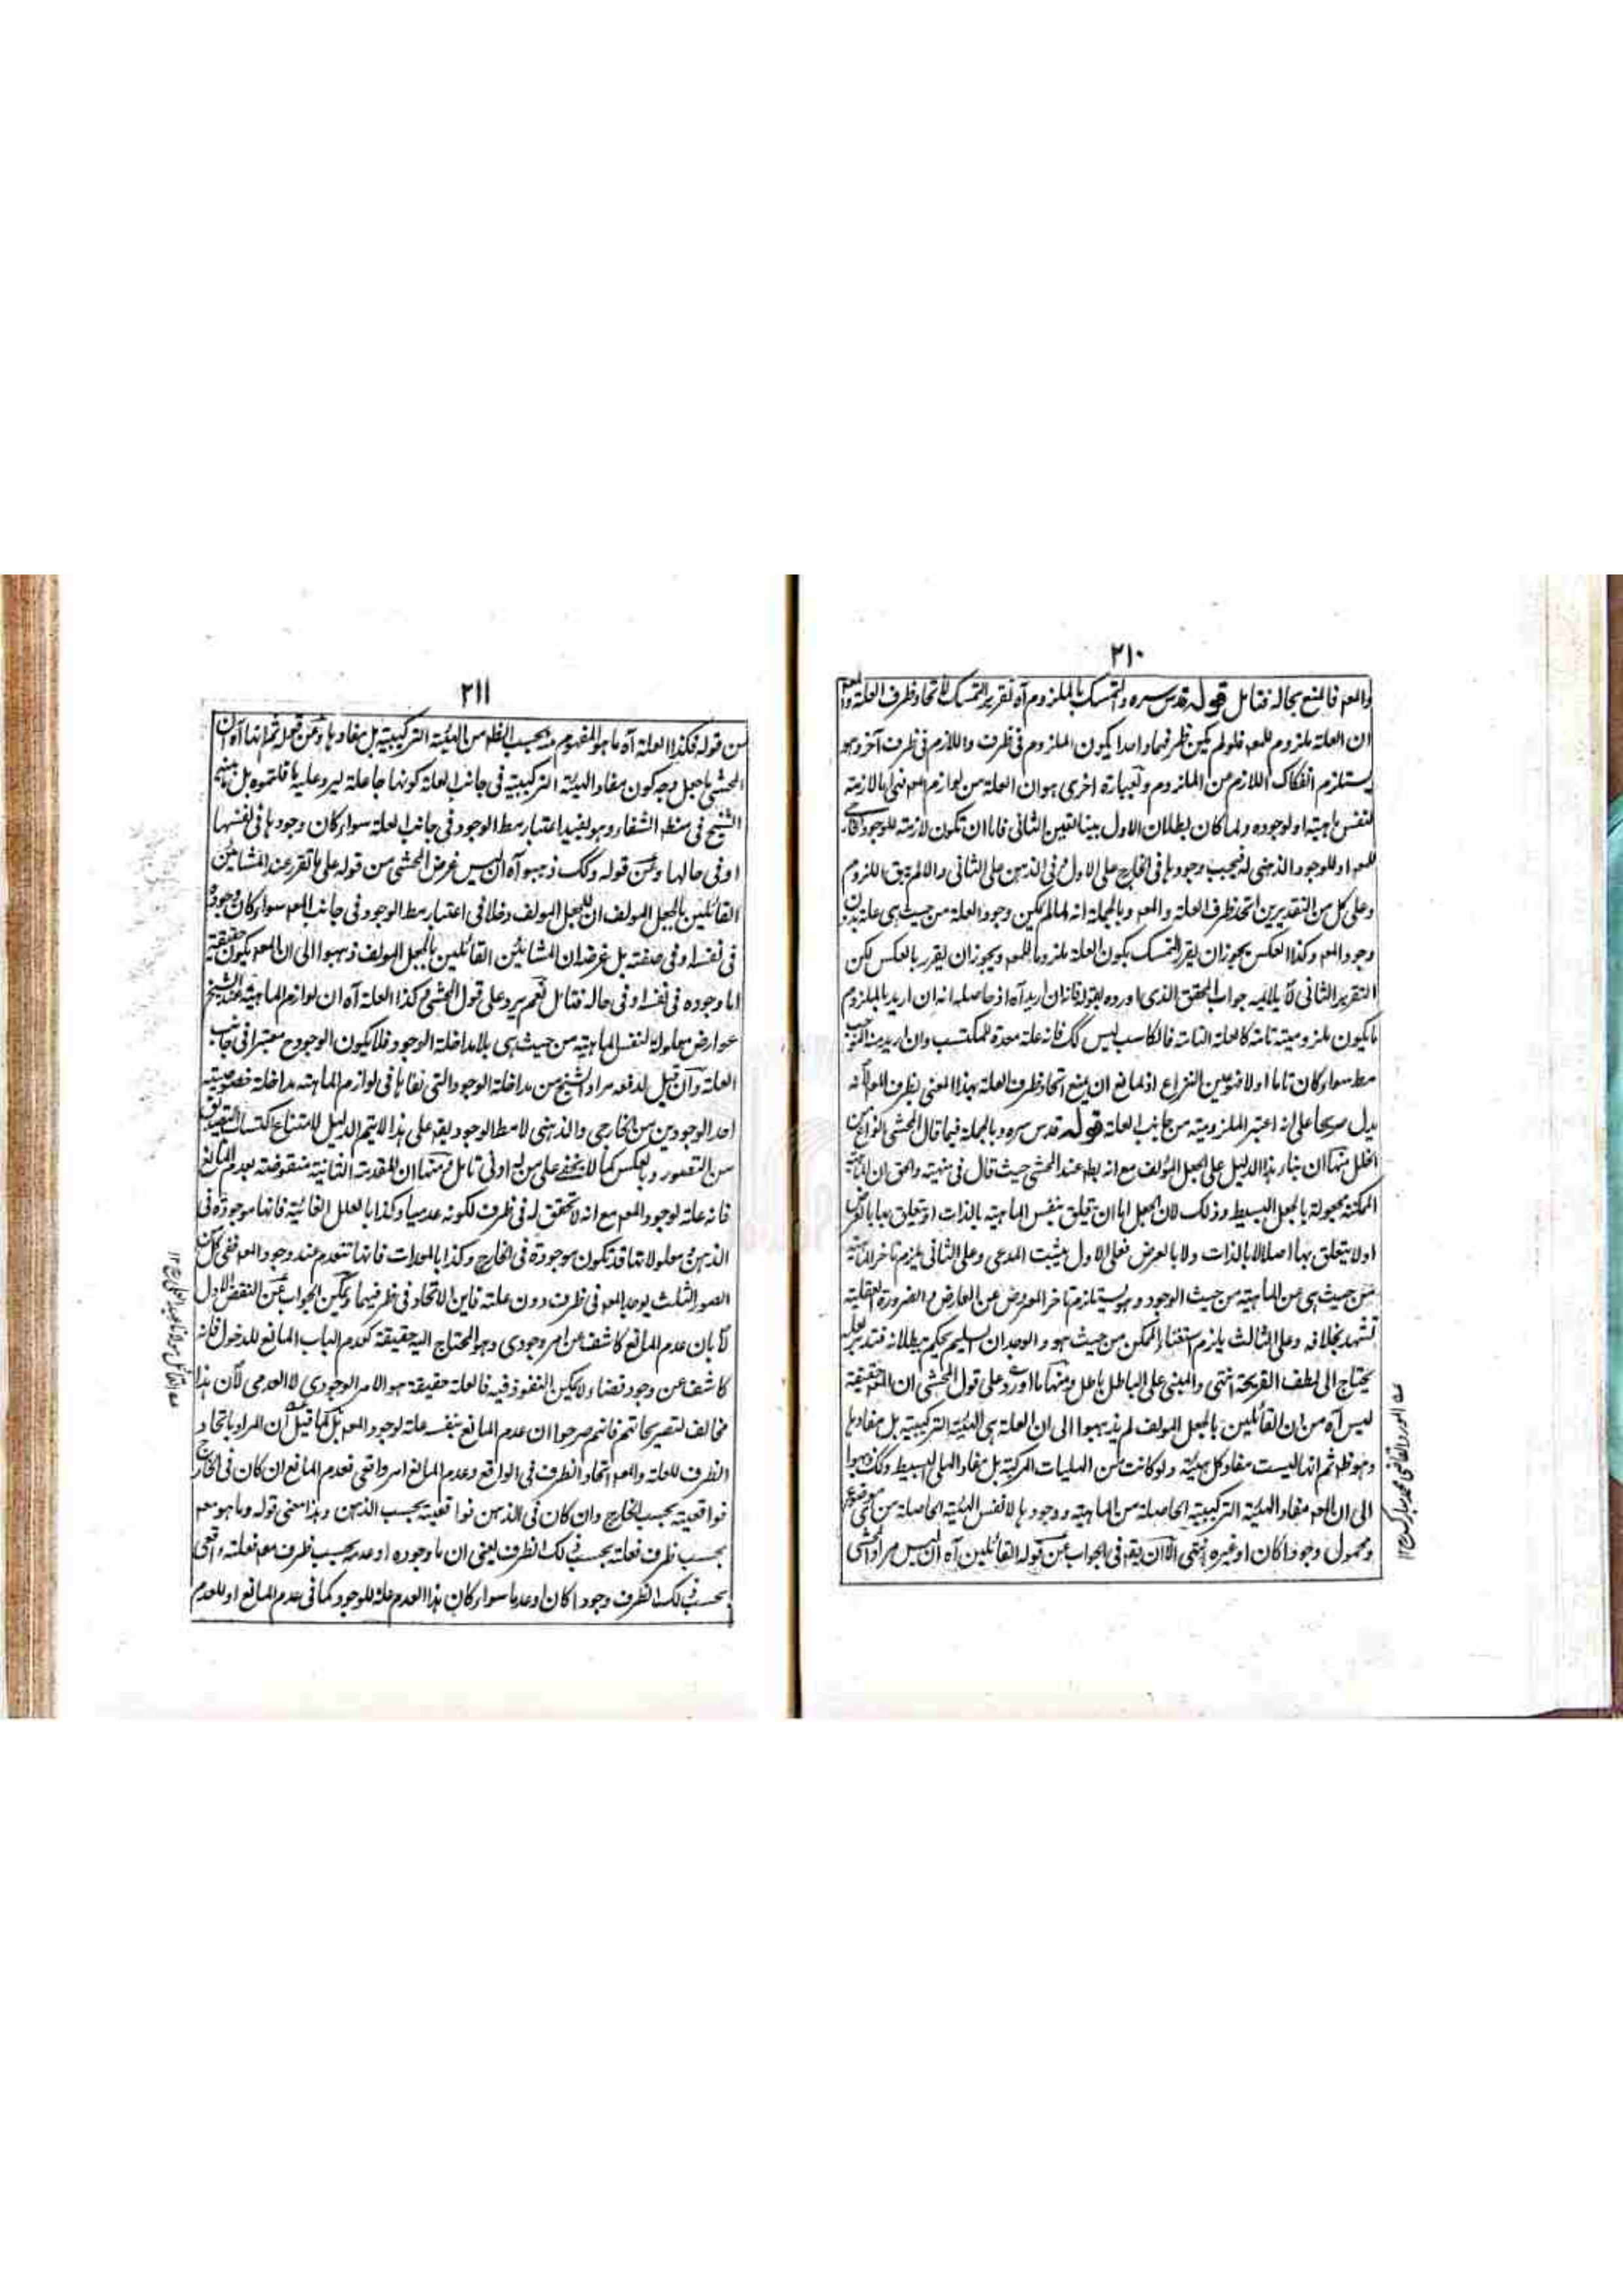 ٢١٠
والمعہ فالمنع بحاله فتامل قوله قدس سره والتمسك بالملزوم آه تقرير التمسك لاتحاد ظرف العلة والمعہ
ان العلة ملزوم للمعہ فلو لم يكن ظرفيهما واحدا يكون الملزوم فی ظرف واللازم فی ظرف آخر وهو
يستلزم انفكاك اللازم من الملزوم وبعبارة اخری هو ان العلة من لوازم المعہ فهی اما لازمة
لنفس ماهيته او لوجوده ولما كان بطلان الاول بينا تعين الثانی فاما ان تكون لازمة للوجود الخارجی
للمعہ او للوجود الذهنی له فيجب وجودها فی الخارج علی الاول وفی الذهن علی الثانی والا لم يبق اللزوم
وعلی كل من التقديرين اتحد ظرف العلة والمعہ وبالجملة انه لما لم يكن وجود العلة من حيث هی علة بدون
وجود المعہ وكذا العكس يجوز ان يقرر التمسك بكون العلة ملزوما للمعہ ويجوز ان يقرر بالعكس لكن
التقرير الثانی لا يلايمه جواب المحقق الذی اورده بقوله فانه ان اريد آه اذ حاصله انه ان اريد بالملزوم
ما يكون ملزوميته تامة كالعلة التامة فالكاسب ليس كك فانه علة معدة للمكتسب وان اريد منه الموجب
مط سواء كان تاما او لا فهو عين النزاع اذ لمانع ان يمنع اتحاد ظرف العلة بهذا المعنی بظرف المعہ لانه
يدل صريحا علی انه اعتبر الملزومية من جانب العلة قوله قدس سره وبالجملة فيما قال المحشی انواع من
الخلل منها ان بناء هذا الدليل علی الجعل المؤلف مع انه بط عند المحشی حيث قال فی منهيته والحق ان الماهية
الممكنة مجعولة بالجعل البسيط وذلك لان الجعل اما ان يتعلق بنفس الماهية بالذات او يتعلق بها بالعرض
او لا يتعلق بها اصلا لا بالذات ولا بالعرض فعلی الاول يثبت المدعی وعلی الثانی يلزم تاخر الماهية
من حيث هی عن الماهية من حيث الوجود وهو يستلزم تاخر المعروض عن العارض والضرورة العقلية
تشهد بخلافه وعلی الثالث يلزم استغناء الممكن من حيث هو والوجدان السليم يحكم ببطلانه فتدبر لعله
يحتاج الی لطف القريحة انتهی والمبنی علی الباطل باطل ومنها ما اورد علی قول المحشی ان المعہ حقيقة
ليس آه من ان القائلين بالجعل المولف لم يذهبوا الی ان العلة هی الهيئة التركيبية بل مفادها
وهو ظه ثم انها ليست مفاد كل هيئة ولو كانت من الهليات المركبة بل مفاد الهلی البسيط وكك ذهبوا
الی ان المعہ مفاد الهيئة التركيبية الحاصلة من الماهية ووجودها لا نفس الهيئة الحاصلة من ای موضوع
ومحمول وجودا كان او غيره انتهی الا ان يقہ فی الجواب عن قوله القائلين آه ان ليس مراد المحشی
عہ المورد القاضی محمد مبارك رح ١٢
٢١١
من قوله فكذا العلة آه ما هو المفهوم منه بحسب الظہ من الهيئة التركيبية بل مفادها وعن قوله ثم انها آه ان
المحشی ما جعل وجه كون مفاد الهيئة التركيبية فی جانب العلة كونها جاعلة ليرد عليه ما قلتموه بل ما بينه
الشيخ فی منطق الشفاء وهو يفيد اعتبار مط الوجود فی جانب العلة سواء كان وجودها فی نفسها
او فی حالها وعن قوله وكك ذهبوا آه ان ليس غرض المحشی من قوله علی ما تقرر عند المشائين
القائلين بالجعل المولف ان للجعل المولف دخلا فی اعتبار مط الوجود فی جانب المعہ سواء كان وجوده
فی نفسه او فی صفته بل غرضه ان المشائين القائلين بالجعل المولف ذهبوا الی ان المعہ يكون حقيقة
اما وجوده فی نفسه او فی حاله فتامل نعم يرد علی قول المحشی وكذا العلة آه ان لوازم الماهية عند الشيخ
عوارض معلولة لنفس الماهية من حيث هی بلا مداخلة الوجود فلا يكون الوجود ح معتبرا فی جانب
العلة وان قيل لدفعه مراد الشيخ من مداخلة الوجود التی نفاها فی لوازم الماهية مداخلة خصوصية
احد الوجودين من الخارجی والذهنی لا مط الوجود يقہ علی هذا لا يتم الدليل لامتناع اكتساب التصديق
من التصور وبالعكس كما لا يخفی علی من له ادنی تامل ومنها ان المقدمة الثانية منقوضة بعدم المانع
فانه علة لوجود المعہ مع انه لا تحقق له فی ظرف لكونه عدميا وكذا بالعلل الغائية فانها موجودة فی
الذهن ومعلولاتها قد تكون موجودة فی الخارج وكذا بالمعدات فانها تنعدم عند وجود المعہ ففی كل من
الصور الثلث يوجد المعہ فی ظرف دون علته فاين الاتحاد فی ظرفيهما ويمكن الجواب عن النقض الاول
لا بان عدم المانع كاشف عن امر وجودی وهو المحتاج اليه حقيقة كعدم الباب المانع للدخول فانه
كاشف عن وجود فضاء ولا يمكن النفوذ فيه فالعلة حقيقة هو الامر الوجودی لا العدمی لان هذا
مخالف لتصريحاتهم فانهم صرحوا ان عدم المانع بنفسه علة لوجود المعہ بل كما قيل ان المراد باتحاد
الظرف للعلة والمعہ اتحاد الظرف فی الواقع وعدم المانع امر واقعی فعدم المانع ان كان فی الخارج
فواقعيته بحسب الخارج وان كان فی الذهن فواقعيته بحسب الذهن وهذا معنی قوله وما هو معہ
بحسب ظرف فعلته بحسب ذلك الظرف يعنی ان ما وجوده او عدمه بحسب ظرف معہ فعلته واقعی
بحسب ذلك الظرف وجودا كان او عدما سواء كان هذا العدم علة للوجود كما فی عدم المانع او للعدم
عہ القائل مولانا عبد العلی رح ١٢